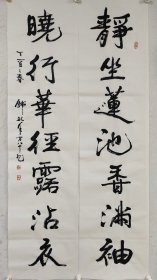 靜坐蓮池香滿袖
曉行華徑露沾衣
丁酉之春